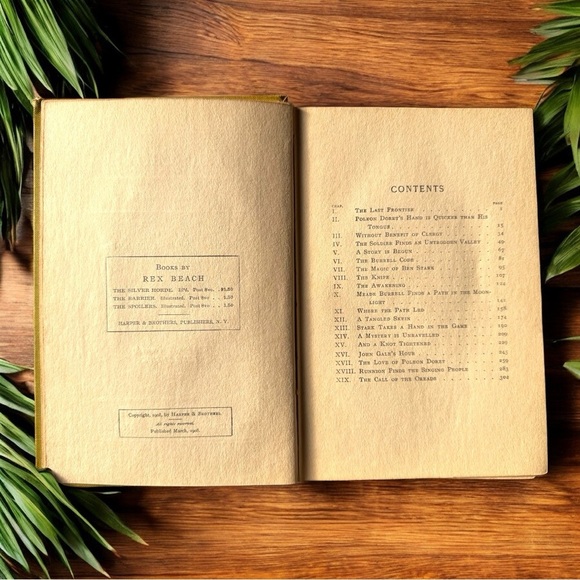 BOOKS BY
REX BEACH
THE SILVER HORDE. Ill'd. Post 8vo, $1.50
THE BARRIER. Illustrated. Post 8vo . 1.50
THE SPOILERS. Illustrated. Post 8vo . 1.50
HARPER & BROTHERS, PUBLISHERS, N. Y.
Copyright, 1908, by HARPER & BROTHERS.
All rights reserved.
Published March, 1908.
CONTENTS
CHAP. PAGE
I. THE LAST FRONTIER 1
II. POLEON DORET'S HAND IS QUICKER THAN HIS
TONGUE 15
III. WITHOUT BENEFIT OF CLERGY 34
IV. THE SOLDIER FINDS AN UNTRODDEN VALLEY 49
V. A STORY IS BEGUN 67
VI. THE BURRELL CODE 81
VII. THE MAGIC OF BEN STARK 95
VIII. THE KNIFE 107
IX. THE AWAKENING
X. BURRELL FINDS A PATH IN THE MOON-
LIGHT
XI. WHERE THE PATH LED 158
XII. A TANGLED SKEIN 174
XIII. STARK TAKES A HAND IN THE GAME 190
XIV. A MYSTERY IS UNRAVELLED 209
XV. AND A KNOT TIGHTENED
XVI. JOHN GALE'S HOUR
XVII. THE LOVE OF POLEON DORET 259
XVIII. RUNNION FINDS THE SINGING PEOPLE 283
XIX. THE CALL OF THE OREADS 302